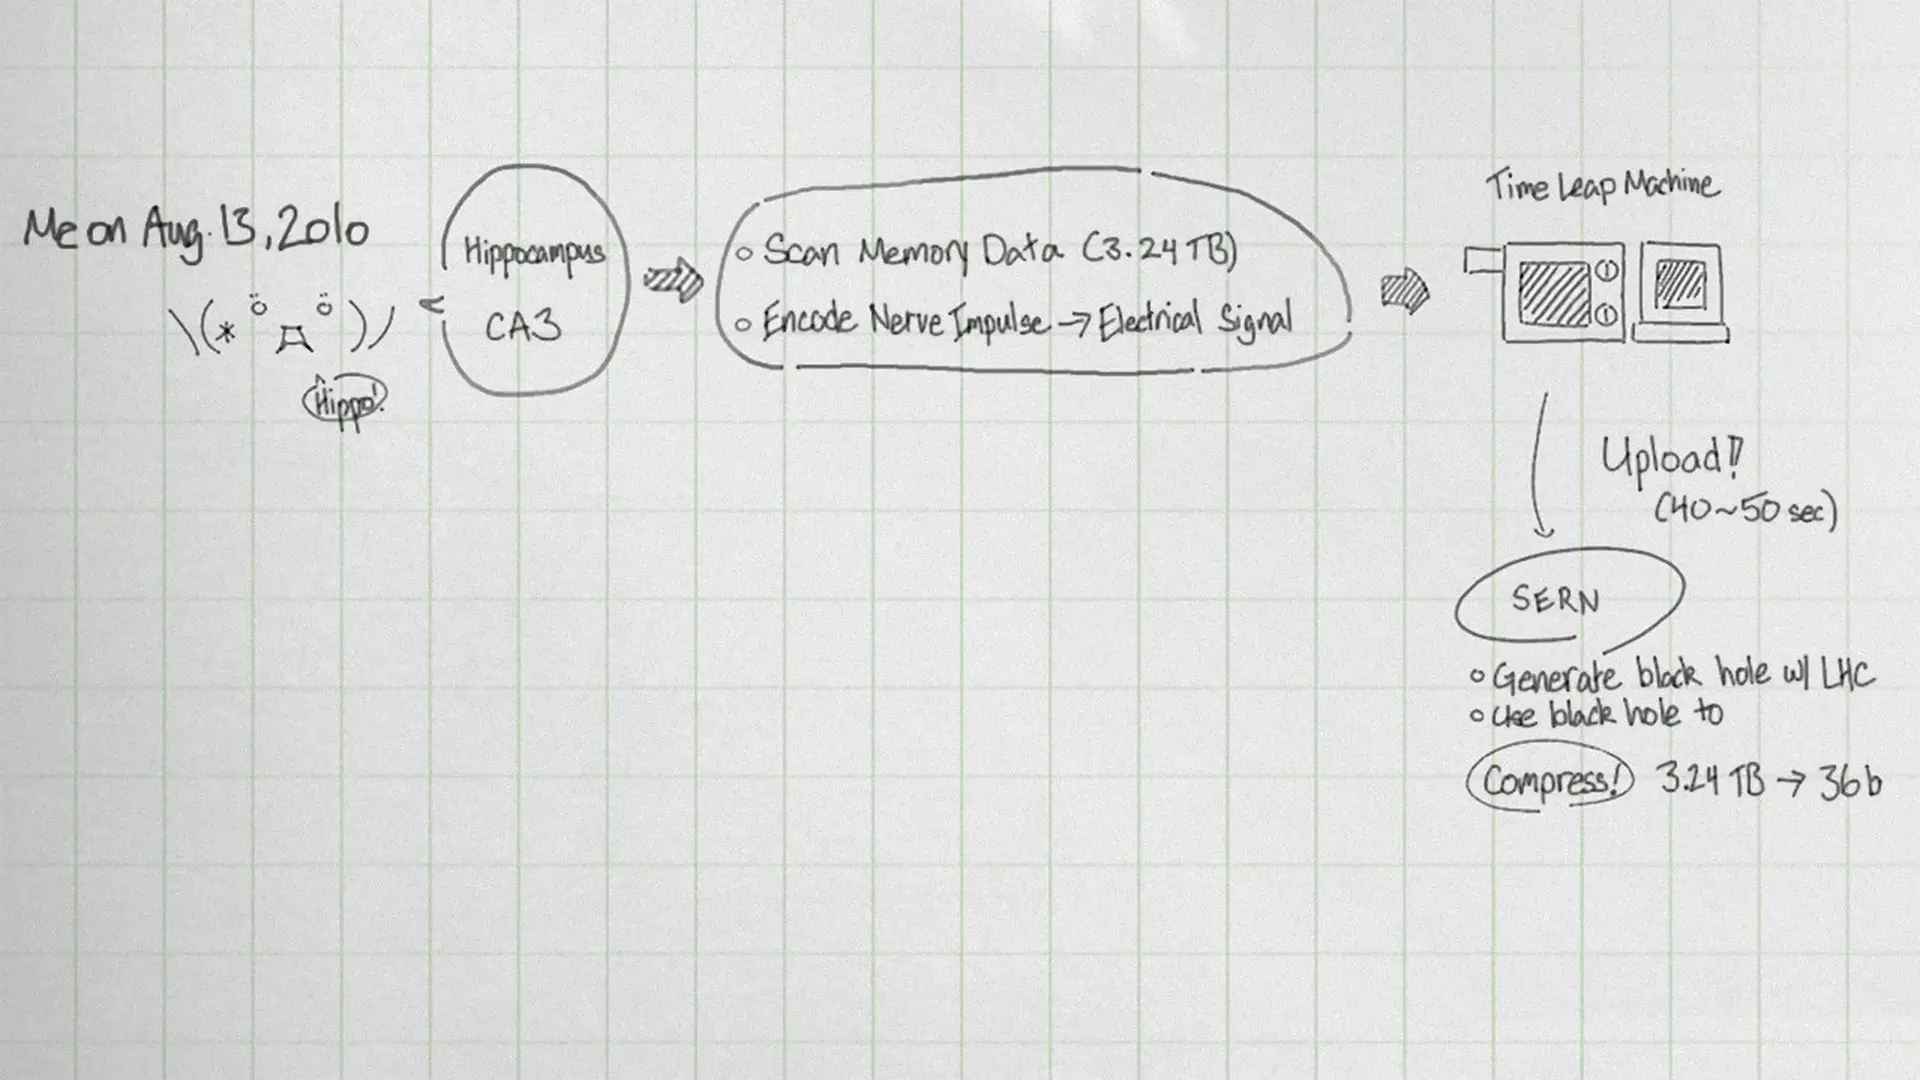 Me on Aug. 13, 2010
\(* ö д ö )/
Hippo!
Hippocampus
CA3
○ Scan Memory Data (3.24 TB)
○ Encode Nerve Impulse → Electrical Signal
Time Leap Machine
Upload!!
(40~50 sec)
SERN
○ Generate black hole w/ LHC
○ Use black hole to
Compress! 3.24 TB → 36 b